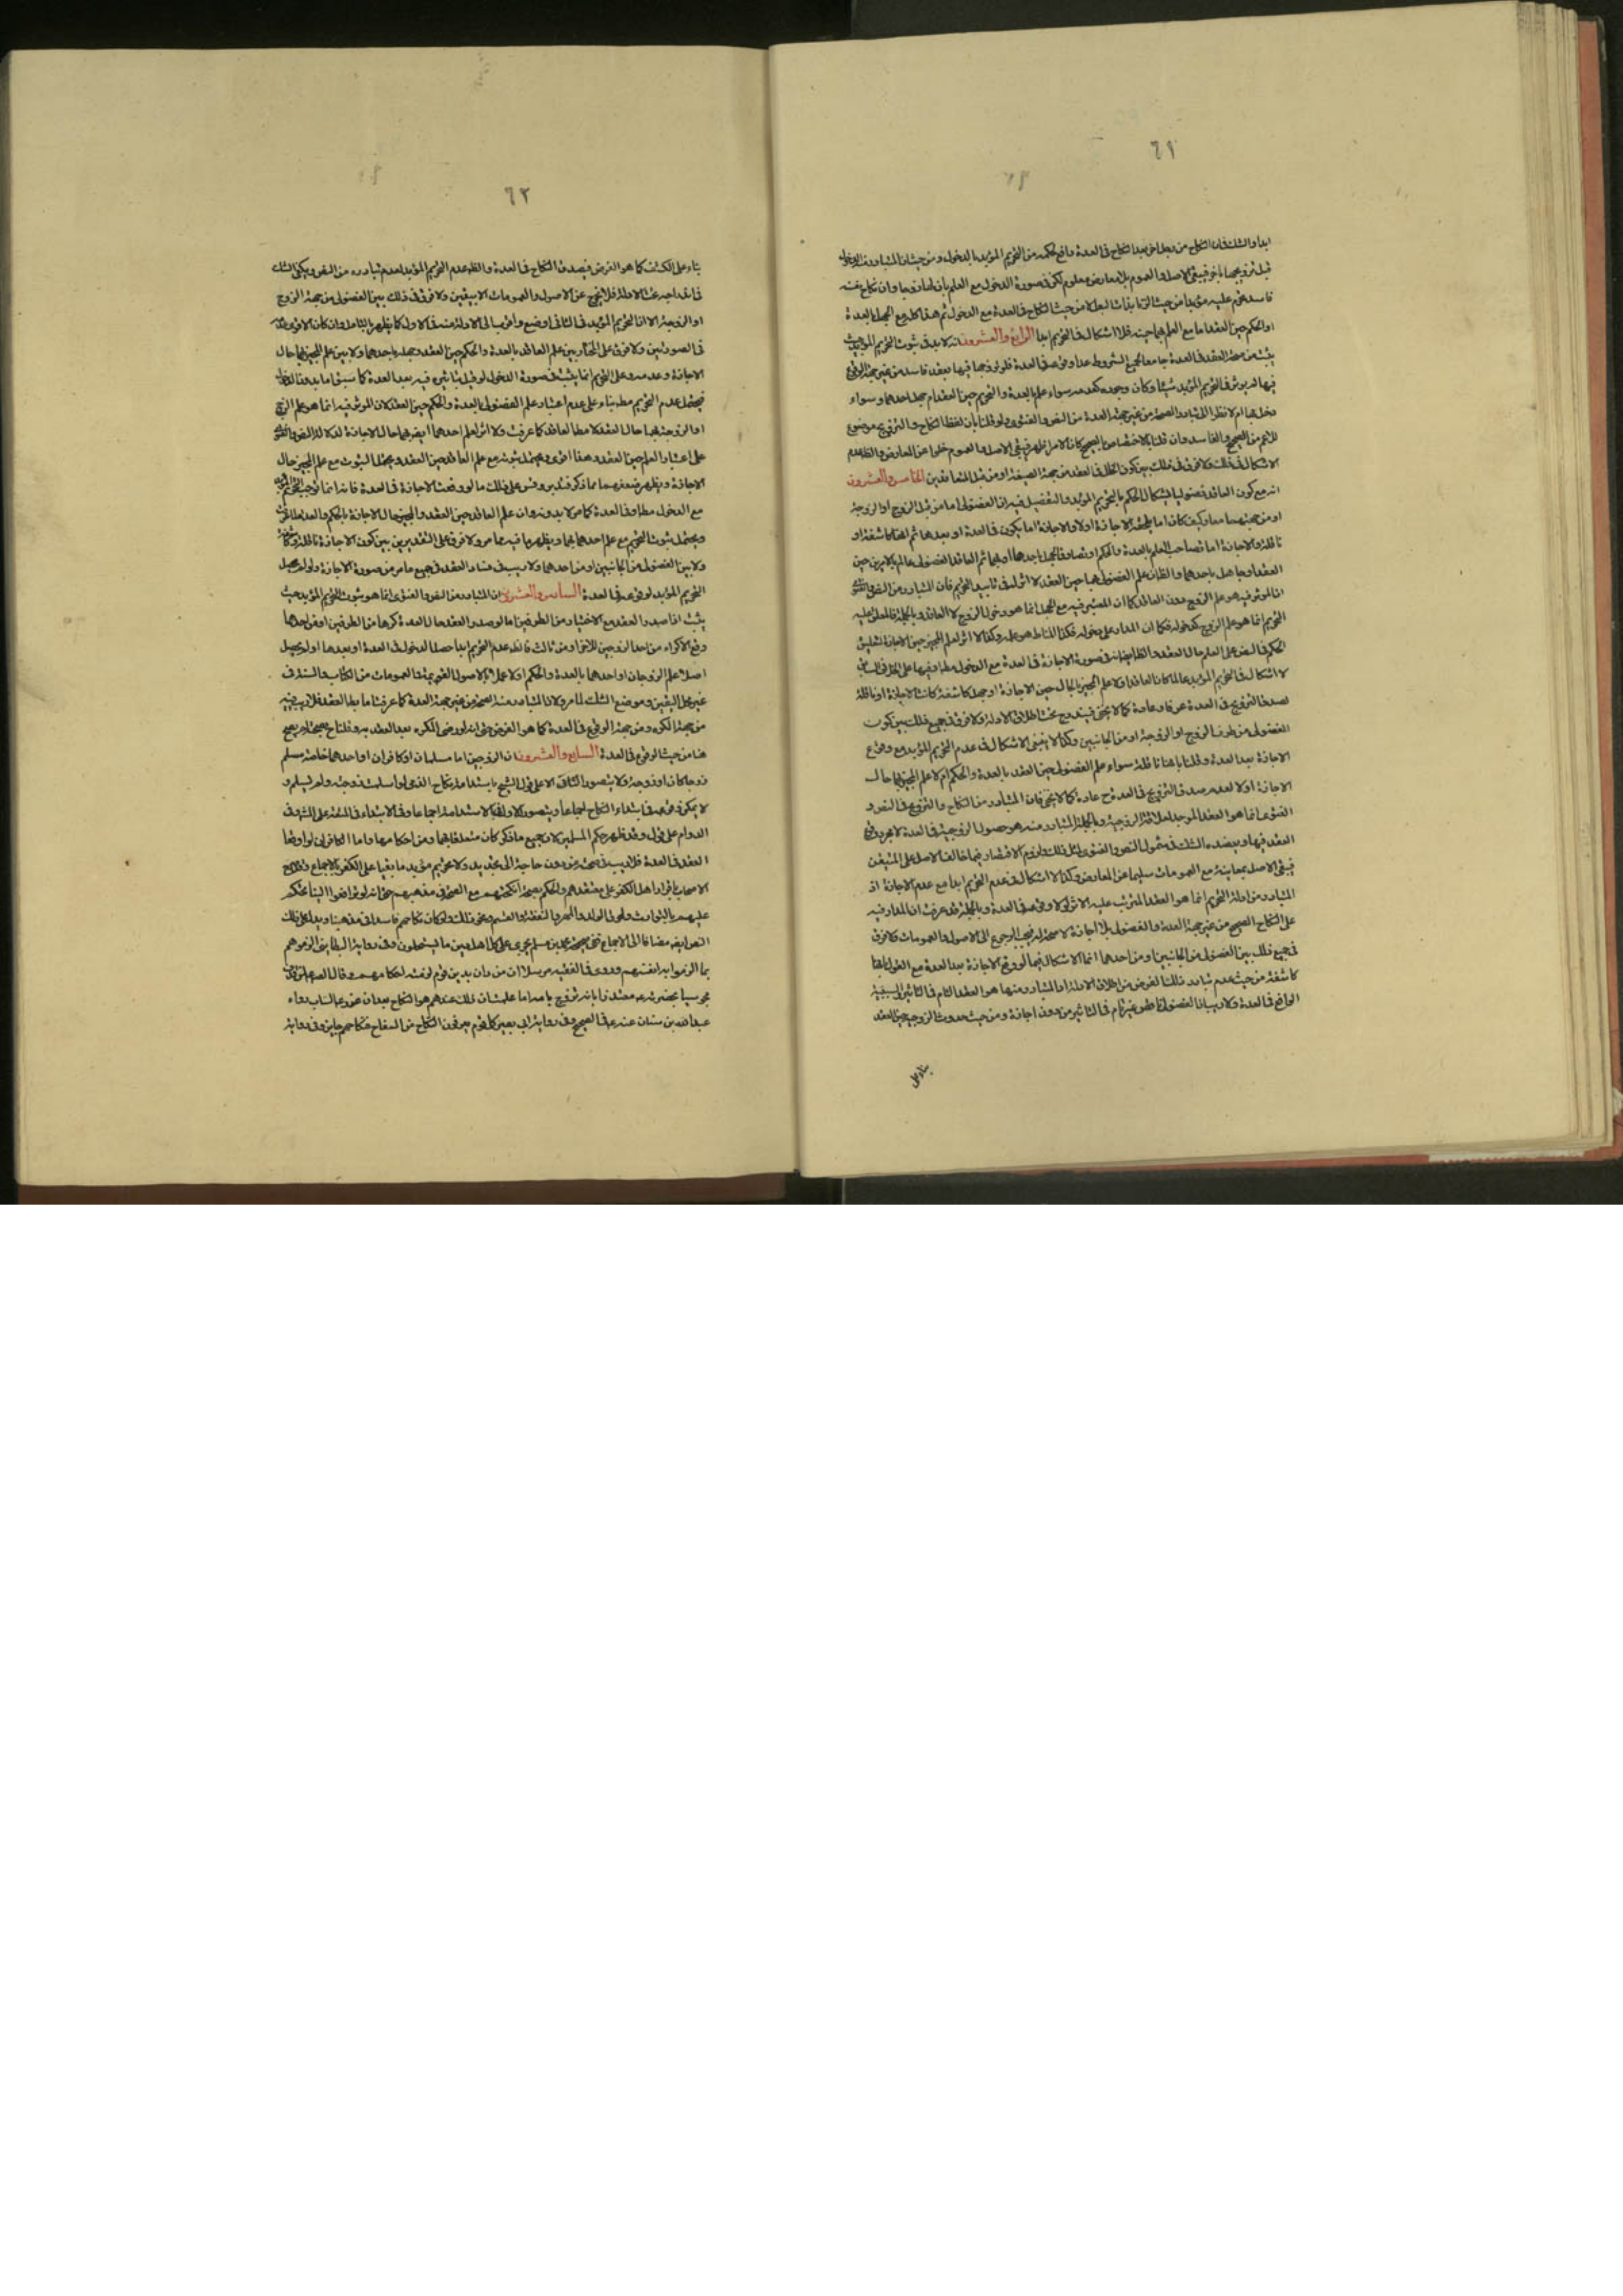 ٦١
ابدا والشك فى ان النكاح من رجل اخر بعد النكاح فى العدة رافع لحكمه من التحريم المؤبد بالدخول ومن حيث ان المتبادر الدخول
قبل تزويجها باخر فيبقى الاصل والعموم بلا معارض معلوم لكن فى صورة الدخول مع العلم بان لها زوجا وان نكاح
فاسد تحرم عليه مؤبدا من حيث الزنا بذات البعل لا من حيث النكاح فى العدة مع الدخول ثم هذا كله مع الجهل بالعدة
او الحكم حين العقد اما مع العلم بهما حينه فلا اشكال فى التحريم ابدا الرابع والعشرون انه لا بد فى ثبوت التحريم المؤبد حيث
يثبت من صحة العقد فى العدة جامعا لجميع الشروط عدا وقوعه فى العدة فلو تزوجها فيها بعقد فاسد من غير جهة الوقوع
فيها لم يوثر فى التحريم المؤبد شيئا وكان وجوده كعدمه سواء علم بالعدة والتحريم حين العقد ام جهل احدهما وسواء
دخل بها ام لا نظرا الى تبادر الصحة من غير جهة العدة من النص والفتوى ولو قلنا بان لفظ النكاح والتزويج موضوع
للاعم من الصحيح والفاسد وان قلنا بالاختصاص بالصحيح كان الامر اظهر فيبقى الاصل والعموم خلوا عن المعارض والظ عدم
الاشكال فى ذلك ولا فرق فى ذلك بين كون الخلل فى العقد من جهة الصيغة او من قبل المتعاقدين الخامس والعشرون
انه مع كون العاقد فضوليا يشكل الحكم بالتحريم المؤبد والتفصيل فيه ان الفضولى اما من قبل الزوج او الزوجة
او من جهتهما معا وكيف كان اما يلحقه الاجازة اولا والاجازة اما يكون فى العدة او بعدها ثم انها كاشفة او
ناقلة والاجازة اما تصاحب العلم بالعدة والحكم او تصادف الجهل باحدهما او بهما ثم العاقد الفضولى عالم بالامرين حين
العقد او جاهل باحدهما والظ ان علم الفضولى بهما حين العقد لا اثر له فى تابيد التحريم فان المتبادر من النص والفتوى
ان الموثر فيه هو علم الزوج دون العاقد كما ان المعتبر فيه مع الجهل انما هو دخول الزوج لا العاقد وبالجملة فالمعلق عليه
التحريم انما هو علم الزوج كدخوله فكما ان المدار على دخوله فكذا المناط هو علمه وكذا لا اثر لعلم المجيز حين الاجازة لتعليق
الحكم فى النص على العلم حال العقد والظ ايضا انه فى صورة الاجازة فى العدة مع الدخول مط او فيها على
لا اشكال فى التحريم المؤبد عالما كان العاقد او لا علم المجيز بالحال حين الاجازة او جهل كاشفة كانت الاجازة او ناقلة
لصدق التزويج فى العدة عرفا وعادة كما لا يخفى فيندرج تحت اطلاق الادلة ولا فرق فى جميع ذلك بين كون
الفضولى من طرف الزوج او الزوجة او من الجانبين وكذا لا ينبغى الاشكال فى عدم التحريم المؤبد مع وقوع
الاجازة بعد العدة وقلنا بانها ناقلة سواء علم الفضولى حين العقد بالعدة والحكم ام لا علم المجيز بهما حال
الاجازة او لا لعدم صدق التزويج فى العدة ح عادة كما لا يخفى فان المتبادر من النكاح والتزويج فى النص و
الفتوى انما هو العقد الموجد لعلاقة الزوجية وبالجملة المتبادر منه هو حصول الزوجية فى العدة لا مجرد وقوع
العقد فيها ويعضده الشك فى شمول النص والفتوى لمثل ذلك ولزوم الاقتصار فيما خالف الاصل على المتيقن
فيبقى الاصل بمعاينه مع العمومات سليما عن المعارض وكذا لا اشكال فى عدم التحريم ابدا مع عدم الاجازة اذ
المتبادر من ادلة التحريم انما هو العقد المترتب عليه الاثر لولا وقوعه فى العدة وبالجملة قد عرفت ان المدار فيه
على النكاح الصحيح من غير جهة العدة والفضولى بلا اجازة لا صحة له فيجب الرجوع الى الاصول والعمومات ولا فرق
فى جميع ذلك بين الفضولى من الجانبين او من احدهما انما الاشكال فيما لو وقع الاجازة بعد العدة مع القول بانها
كاشفة من حيث عدم تبادر ذلك الفرض من اطلاق الادلة اذ المتبادر منها هو العقد التام فى التاثير والسببية
الواقع فى العدة ولا ريب ان الفضولى غير تام فى التاثير من دون اجازة ومن حيث حدوث الزوجية حين العقد
بناء على
٦٢
بناء على الكشف كما هو الفرض فيصدق النكاح فى العدة والظ عدم التحريم المؤبد لعدم تبادره من النص ويكفى الشك
فى اندراجه تحت الادلة فلا يخرج عن الاصول والعمومات الا بيقين ولا فرق فى ذلك بين الفضولى من جهة الزوج
او الزوجة الا ان التحريم المؤبد فى الثانى اوضح واقرب الى الادلة منه فى الاول كما يظهر بالتامل وان كان الاقوى
فى الصورتين ولا فرق على المختار بين علم العاقد بالعدة والحكم حين العقد وجهله باحدهما ولا بين علم المجيز بهما حال
الاجازة وعدمه وعلى التحريم انما يثبت فى صورة الدخول لو قيل بتاثيره فيه بعد العدة كما سبق اما بدون الدخول
فيحتمل عدم التحريم مط بناء على عدم اعتبار علم الفضولى بالعدة والحكم حين العقد لان الموثر فيه انما هو علم الزوج
او الزوجة بهما حال العقد لا مط العاقد كما عرفت ولا اثر لعلم احدهما ايضا بهما حال الاجازة لدلالة النص والفتوى
على اعتبار العلم حين العقد وهذا اقوى ويحتمل ثبوته مع علم العاقد حين العقد ويحتمل الثبوت مع علم المجيز حال
الاجازة ويظهر ضعفهما مما ذكر فتدبر وقس على ذلك ما لو وقعت الاجازة فى العدة فانه انما توجب التحريم المؤبد
مع الدخول مط او فى العدة كما مر لا بدونه وان علم العاقد حين العقد والمجيز حال الاجازة بالحكم والعدة لما عرفت
ويحتمل ثبوت التحريم مع علم احدهما بهما ويظهر ما فيه مما مر ولا فرق على التقديرين بين كون الاجازة ناقلة وكاشفة
ولا بين الفضولى من الجانبين او من احدهما ولا ريب فى فساد العقد فى جميع ما مر من صورة الاجازة ولو لم يحصل
التحريم المؤبد لوقوعه فى العدة السادس والعشرون ان المتبادر من النص والفتوى انما هو ثبوت التحريم المؤبد حيث
يثبت اذا صدر العقد مع الاختيار من الطرفين اما لو صدر العقد حال العدة كرها من الطرفين او من احدهما
وقع الاكراه من احد الزوجين للاخر او من ثالث فالظ عدم التحريم ابدا حصل الدخول فى العدة او بعدها او لم يحصل
اصلا علم الزوجان او احدهما بالعدة والحكم او لا عملا بالاصول القويمة والعمومات من الكتاب والسنة فى
غير محل اليقين وموضع الشك لما مر ولان المتبادر منه الصحة من غير جهة العدة كما عرفت اما بطلان العقد فلا ريب فيه
من جهة الكره ومن جهة الوقوع فى العدة كما هو الفرض حتى انه لو رضى المكره بعد العقد به وقلنا ح بصحته لم يصح
هنا من حيث الوقوع فى العدة السابع والعشرون ان الزوجين اما مسلمان او كافران او احدهما خاصة مسلم
زوجا كان او زوجة ولا يتصور الثانى الا على قول الشيخ باستدامة نكاح الذمى لو اسلمت زوجته ولم يسلم و
لا يمكن فرضه فى ابتداء النكاح اجماعا ويتصور الاول فيها لاستدامة اجماعا وفى الابتداء فى المتعة على المش وفى
الدوام على قول وقد ظهر حكم المسلمين لان جميع ما ذكر كان متعلقا بهما ومن احكامهما واما الكافران لو اوقعا
العقد فى العدة فلا ريب فى صحته من دون حاجة الى تجديد ولا تحريم مؤبد ما بقيا على الكفر بالاجماع وتصريح
الاصحاب باقرار اهل الكفر على معتقدهم والحكم بصحة انكحتهم مع الصحة فى مذهبهم حتى انه لو ترافعوا الينا نحكم
عليهم بالتوارث ولحوق الولد والمهر والنفقة والقسم ونحو ذلك ولو كان نكاحهم فاسدا فى مذهبنا ويدل على ذلك
النصوص مضافا الى الاجماع ففى صحيحة محمد بن مسلم يجرى على كل اهل دين ما يستحلون وفى رواية البطاينى الزموهم
بما الزموا به انفسهم وروى فى الفقيه مرسلا ان من دان بدين قوم لزمته احكامهم وقال الصادق
مجوسيا بحضرته معتذرا بانه تزوج بامه اما علمت ان ذلك عندهم هو النكاح بعد ان
عبد الله بن سنان عنه فى الصحيح وفى رواية ابى بصير كل قوم يعرفون النكاح من السفاح فنكاحهم جايز وفى رواية